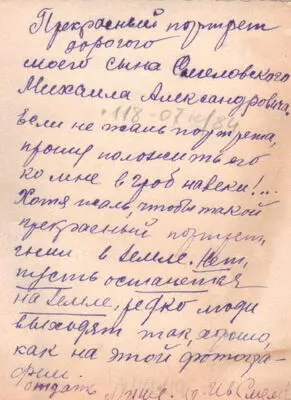 Прекрасный портрет
дорогого
моего сына Смеловского
Михаила Александровича.
118-07к/84
Если не жаль портрета,
прошу положить его
ко мне в гроб навеки!...
Хотя жаль, чтобы такой
прекрасный портрет,
гнил в земле. Нет,
пусть останется
на земле, редко люди
выходят так хорошо,
как на этой фотогра-
фии.
отдать